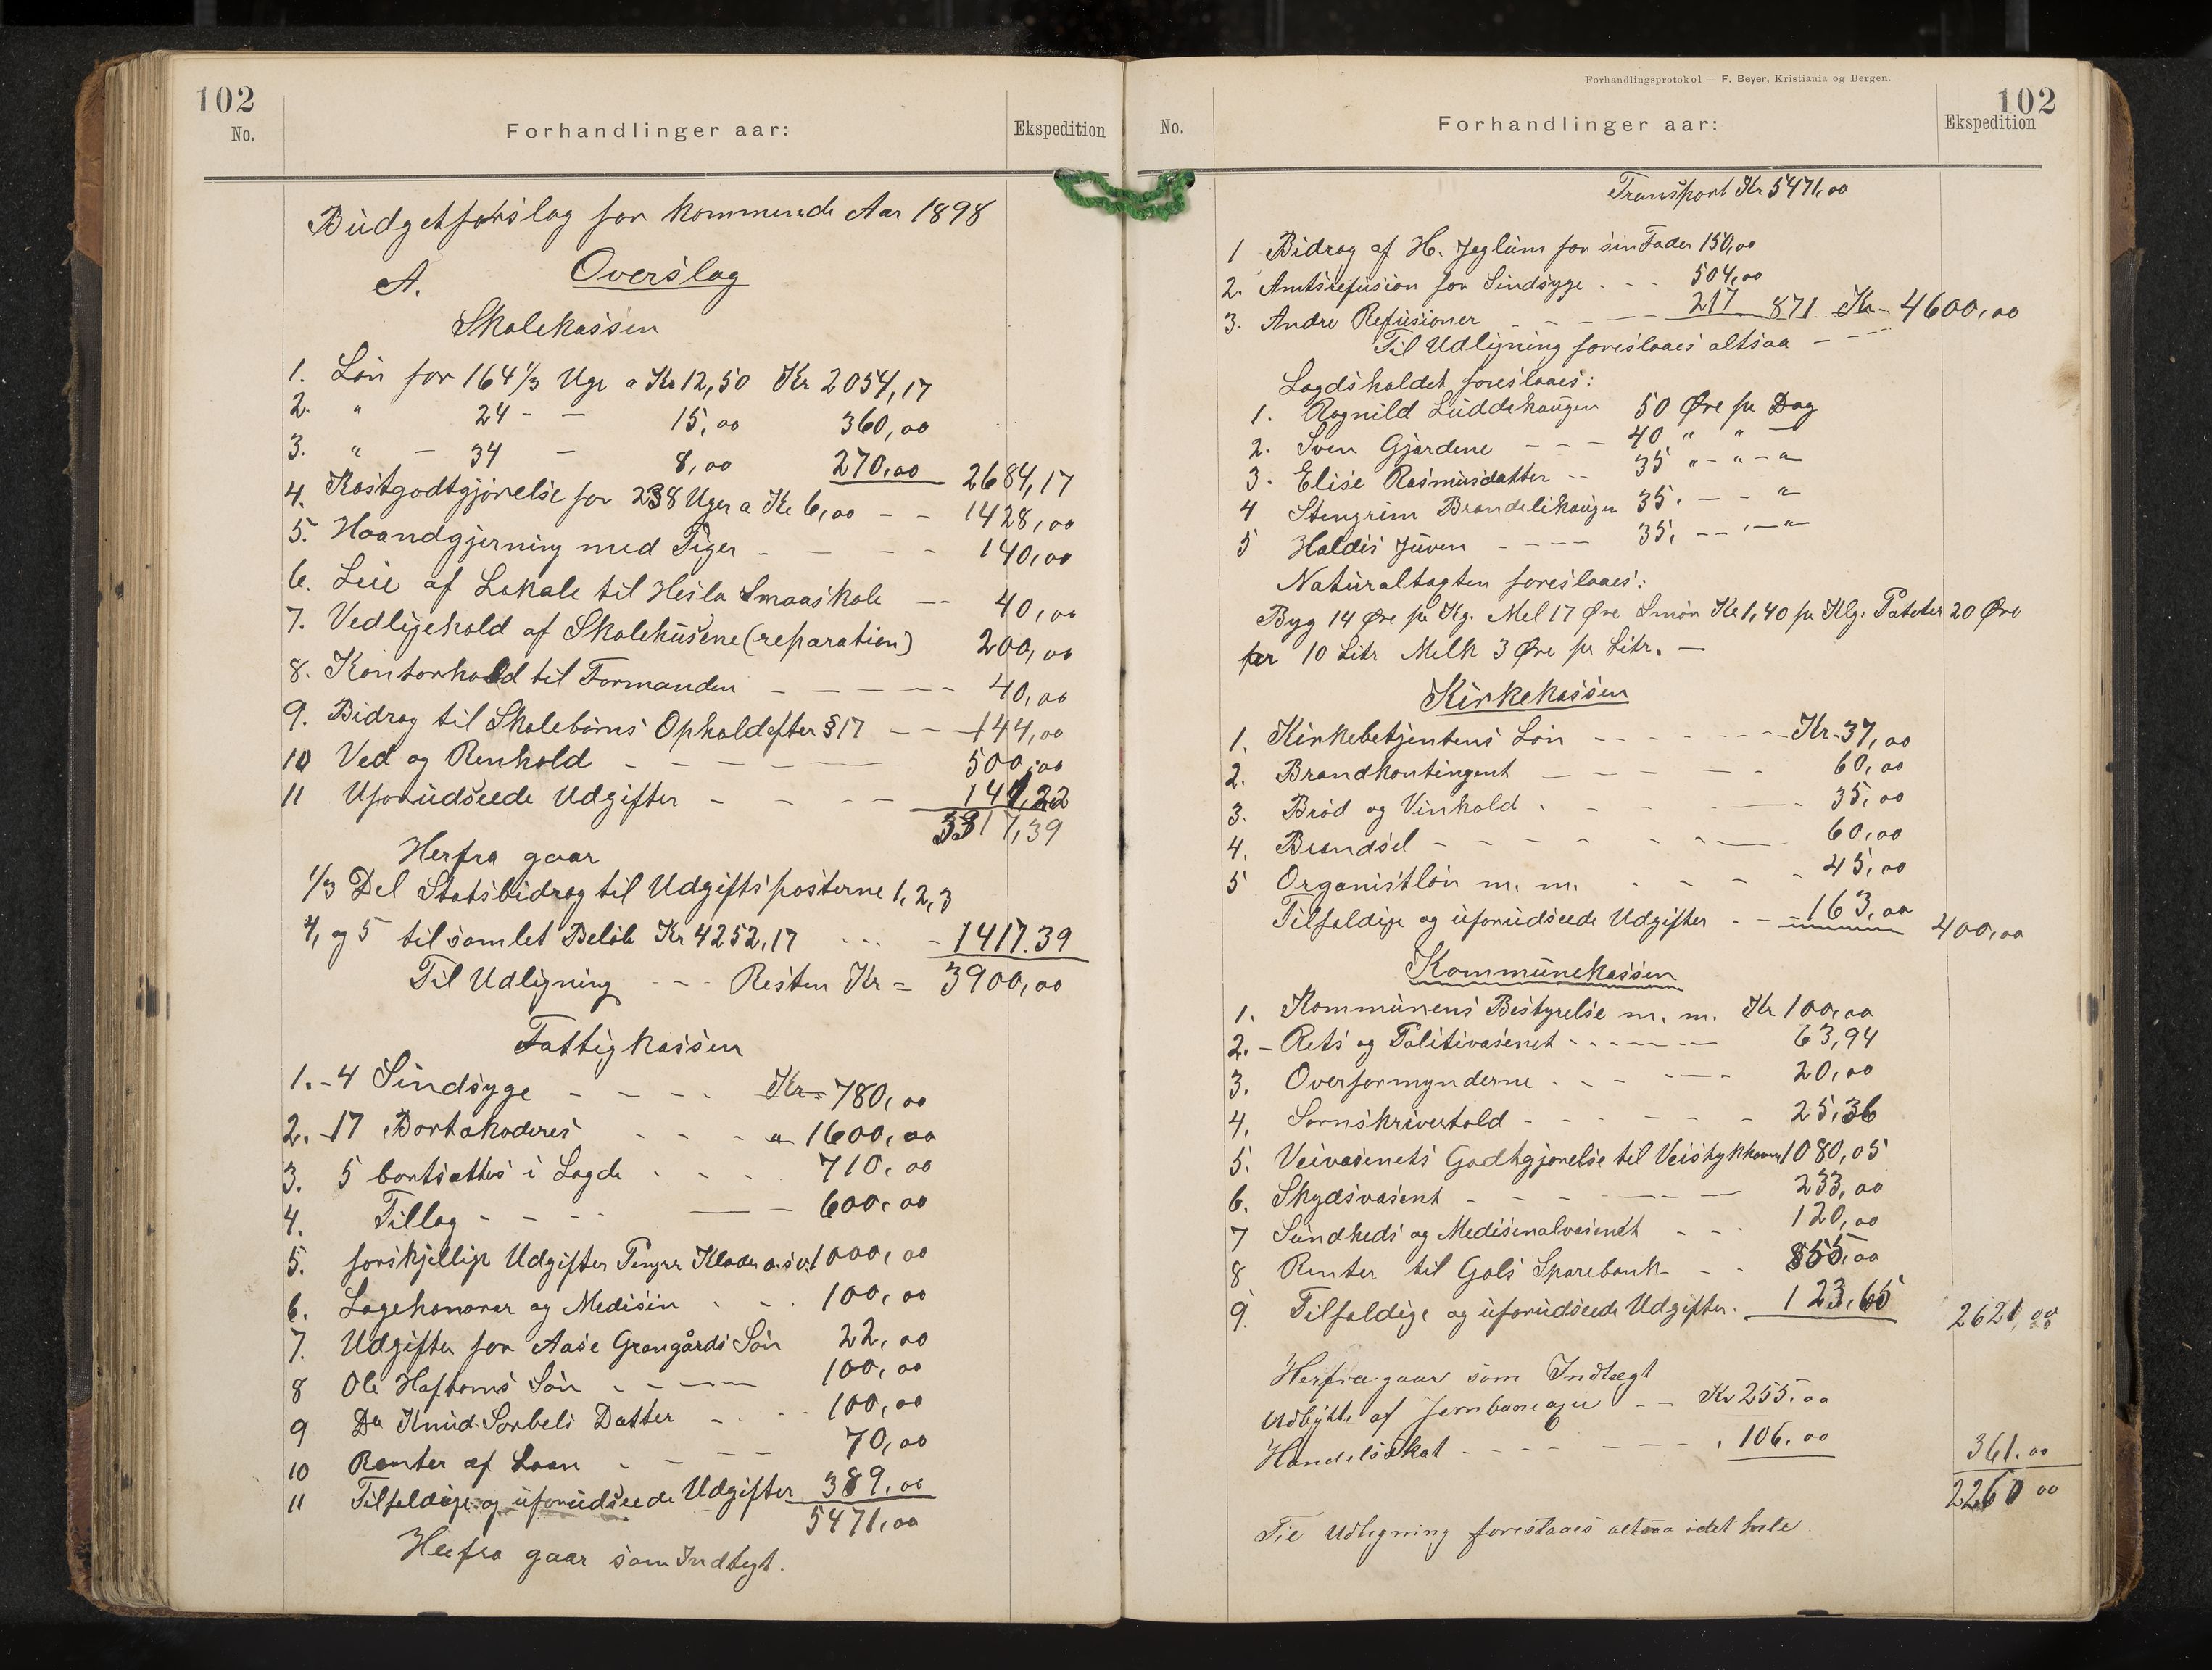 102
No.
Forhandlinger aar:
Ekspedition
Budgetforslag for kommende Aar 1898
A. Overslag
Skolekassen
1. Løn for 164 1/3 Uge a Kr 12,50 Kr 2054,17
2. " 24 - — 15,00 360,00
3. " — 34 — 8,00 270,00 2684,17
4. Kostgodtgjørelse for 238 Uger a Kr 6,00 - - 1428,00
5. Haandgjerning med Piger - — - - 140,00
6. Leie af Lokale til Hesla Smaaskole -- 40,00
7. Vedligehold af Skolehusene (reparation) 200,00
8. Kontorhold til Formanden - - - - - 40,00
9. Bidrag til Skolebørns Ophold efter § 17 - - 144,00
10 Ved og Renhold - - - - - 500,00
11 Uforudseede Udgifter - - - - 141,22
5317,39
Herfra gaar
1/3 Del Statsbidrag til Udgiftsposterne 1, 2, 3
4, og 5 tilsamlet Beløb Kr 4252,17 ... - 1417.39
Til Udligning - - - Resten Kr = 3900,00
Fattigkassen
1. - 4 Sindsyge - - - - Kr = 780,00
2. - 17 Bortakoderes - - - " 1600,00
3. 5 bortsættes i Lægd - - - 710,00
4. Tillæg - - - - — - 600,00
5. forskjellige Udgifter Penger Klæder osv. 1000,00
6. Lægehonorar og Medisin - - - 100,00
7. Udgifter for Aase Grangårds Søn 22,00
8 Ole Haftorns Søn - - - — 100,00
9 Do Knud Sorbels Datter - - - - 100,00
10 Renter af Laan - - - - 70,00
11 Tilfeldige og uforudseede Udgifter 389,00
5471,00
Herfra gaar som Indtegt.
Forhandlingsprotokol — F. Beyer, Kristiania og Bergen.
102
No.
Forhandlinger aar:
Ekspedition
Transport Kr 5471,00
1 Bidrag af H. Jeglum for sin Fader 150,00
2. Amtsrefusion for Sindsyge . - - 504,00
3. Andre Refusioner - - - - 217 871 Kr - 4600,00
Til Udligning foreslaaes altsaa - - -
Lægdsholdet foreslaaes:
1. Ragnild Luddehaugen 50 Øre pr Dag
2. Sven Gjordene - - - 40 " " —
3. Elise Rasmusdatter -- 35 " - " - "
4 Stengrim Brandelihaugen 35. - - "
5 Haldis Juven - - - - 35. - - , - "
Naturaltagten foreslaaes:
Byg 14 Øre pr Kg. Mel 17 Øre Smør Kr 1,40 pr Klg. Poteter 20 Øre
per 10 Litr Melk 3 Øre pr Litr. —
Kirkekassen
1. Kirkebetjentens Løn - - - - - - Kr - 37,00
2. Brandkontingent - - - - - 60,00
3. Brød og Vinhold . - - - — 35,00
4. Brændsel - - - - - - 60,00
5 Organistløn m. m. - - - - 45,00
Tilfældige og uforudseede Udgifter - - 163,00 400,00
Kommunekassen
1. Kommunens Bestyrelse m. m. Kr 100,00
2. - Rets og Politivæsenet - - - - - - 63,94
3. Overformynderne - - - - - 20,00
4. Sornskrivertold - - - - - - 25,36
5. Veivæsenets Godtgjørelse til Veistykkerne 1080,05
6. Skydsvæsent - - - - - - 233,00
7 Sundheds og Medisenalvæsendt - - 120,00
8 Renter til Gols Sparebank - - 855,00
9. Tilfældige og uforudseede Udgifter. 123,65 2621,00
Herfra gaar som Indtægt
Udbytte af Jernbaneagie - - Kr 255.00
Handelsskat - - - - - - - . 106.00 361.00
2260 00
Til Udligning foreslaaes altsaa idet hele.